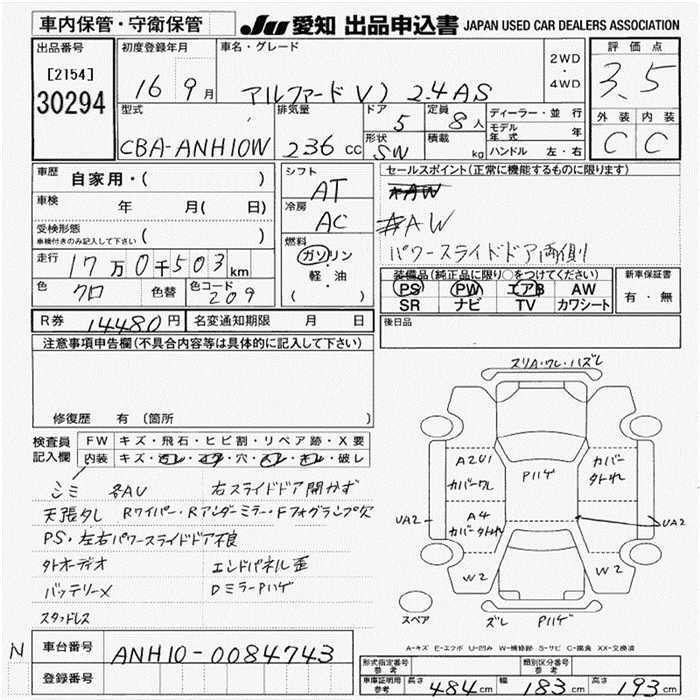 車内保管・守衛保管 JU 愛知 出品申込書 JAPAN USED CAR DEALERS ASSOCIATION
出品番号 初度登録年月 車名・グレード 2WD・4WD 評価点
[2154] 16 9月 アルファード V) 2.4 AS 3.5
30294
型式 排気量 ドア 定員 ディーラー・並行 外装 内装
CBA-ANH10W 236 cc 5 8人 モデル年式 年 C C
形状 SW 積載 kg ハンドル 左・右
車歴 自家用・( ) シフト AT セールスポイント(正常に機能するものに限ります)
車検 年 月( 日) 冷房 AC #AW
受検形態 ( )
車検付きのみ記入して下さい
パワースライドドア両側
走行 17万0千503km 燃料 ガソリン
軽・油
( )
色 クロ 色替 色コード 209
装備品(純正品に限り○をつけてください) 新車保証書
PS PW エアB AW 有・無
SR ナビ TV カワシート
R券 14480円 名変通知期限 月 日 後日品
注意事項申告欄(不具合内容等は具体的に記入して下さい)
修復歴 有(箇所 )
スリA・ワレ・ハズレ
検査員記入欄 FW キズ・飛石・ヒビ割・リペア跡・X要
内装 キズ・
穴・
破レ
シミ 各AU 右スライドドア開かず
天張タレ Rワイパー・Rアンダーミラー・Fフォグランプ欠
PS・左右パワースライドドア不良
外オーディオ エンドパネル歪
バッテリーX Dミラー Pハゲ
スタッドレス
A2U1
カバーワレ
Pハゲ
カバー
外れ
UA2
A4
カバー外れ
UA2
W2
W2
スペア
ズレ Pハゲ
A-キズ E-エクボ U-凹み W-補修跡 S-サビ C-腐食 XX-交換済
N 車台番号 ANH10-0084743
登録番号
形式指定番号 参考 類別区分番号 参考
車庫証明用 参考 長さ 484cm 幅 183cm 高さ 193cm